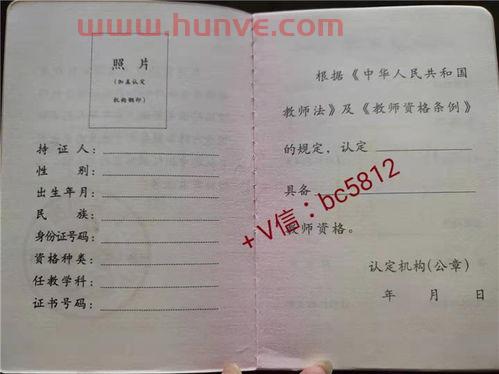 www.hunve.com
照 片
(加盖认定
机构钢印)
持 证 人：
性 别：
出生年月：
民 族：
身份证号码：
资格种类：
任教学科：
证书号码：
根据《中华人民共和国
教师法》及《教师资格条例》
的规定，认定
具备
教师资格。
认定机构(公章)
年 月 日
+V信：bc5812